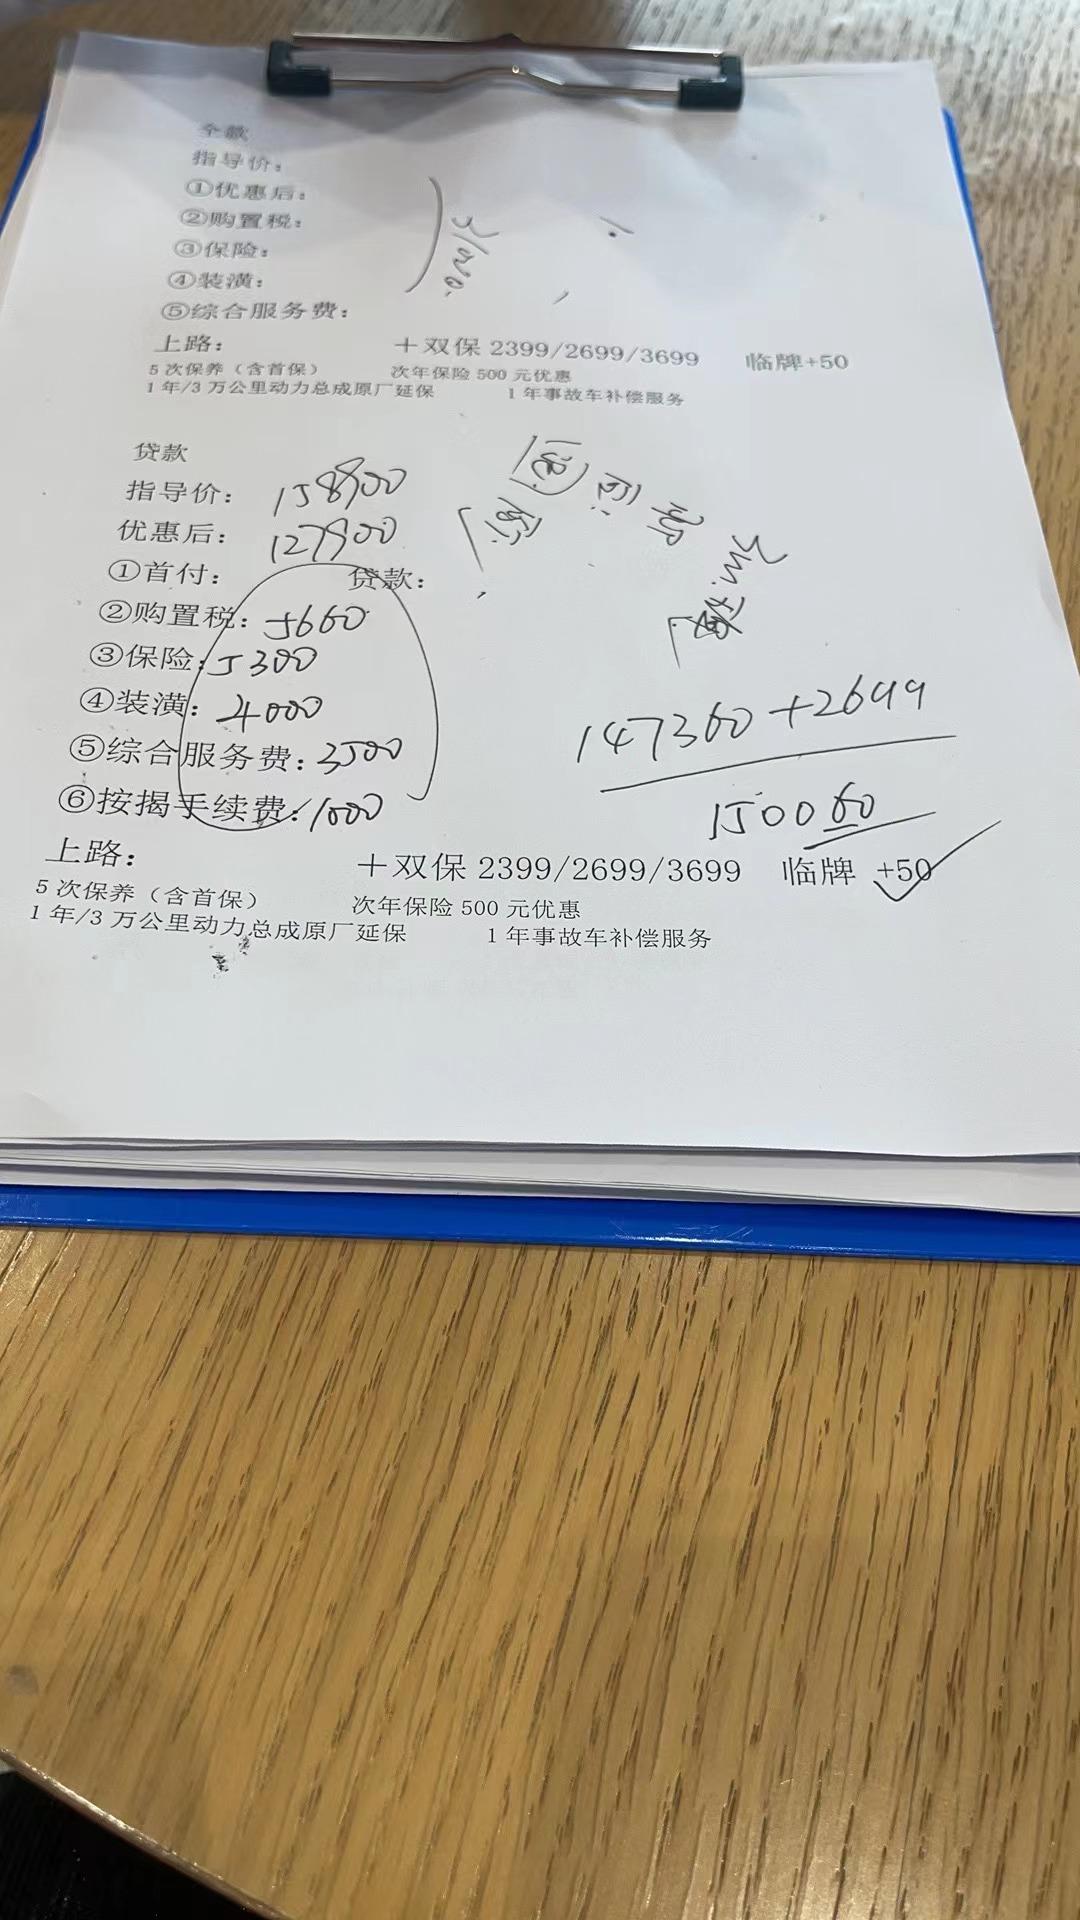 全款
指导价：
①优惠后：
②购置税：
③保险：
④装潢：
⑤综合服务费：
上路： ＋双保 2399/2699/3699 临牌+50
5 次保养（含首保） 次年保险 500 元优惠
1 年/3 万公里动力总成原厂延保 1 年事故车补偿服务
贷款
指导价： 158900
优惠后： 127900
①首付： 贷款：
②购置税：5660
③保险：5300
④装潢：4000
⑤综合服务费：3500
⑥按揭手续费：1000
147360+2699
150060
上路： ＋双保 2399/2699/3699 临牌 +50
5 次保养（含首保） 次年保险 500 元优惠
1 年/3 万公里动力总成原厂延保 1 年事故车补偿服务